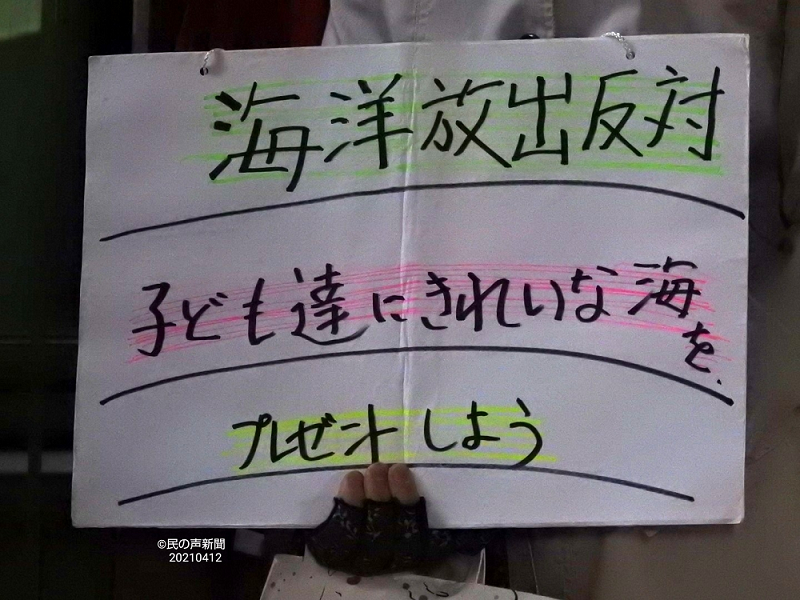 海洋放出反対
子ども達にきれいな海を、
プレゼントしよう
©民の声新聞
20210412